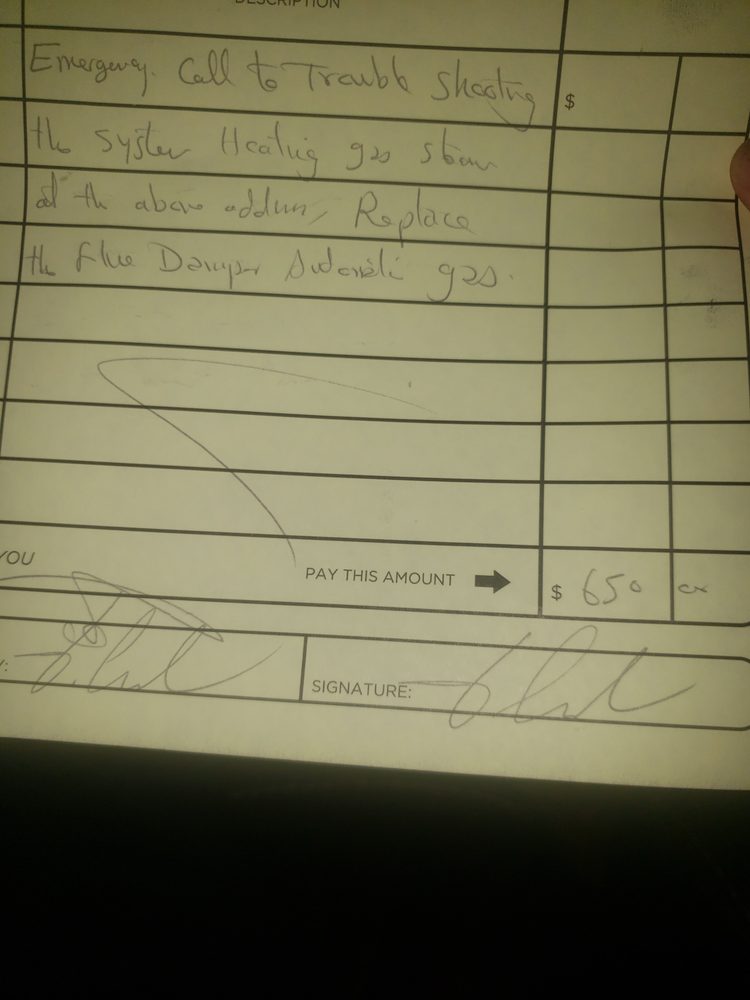 DESCRIPTION
Emergency. Call to Troubb shooting $
the system Heating gas steam
at the above address, Replace
the flue Damper Automatic gas.
YOU
PAY THIS AMOUNT $ 650
SIGNATURE: